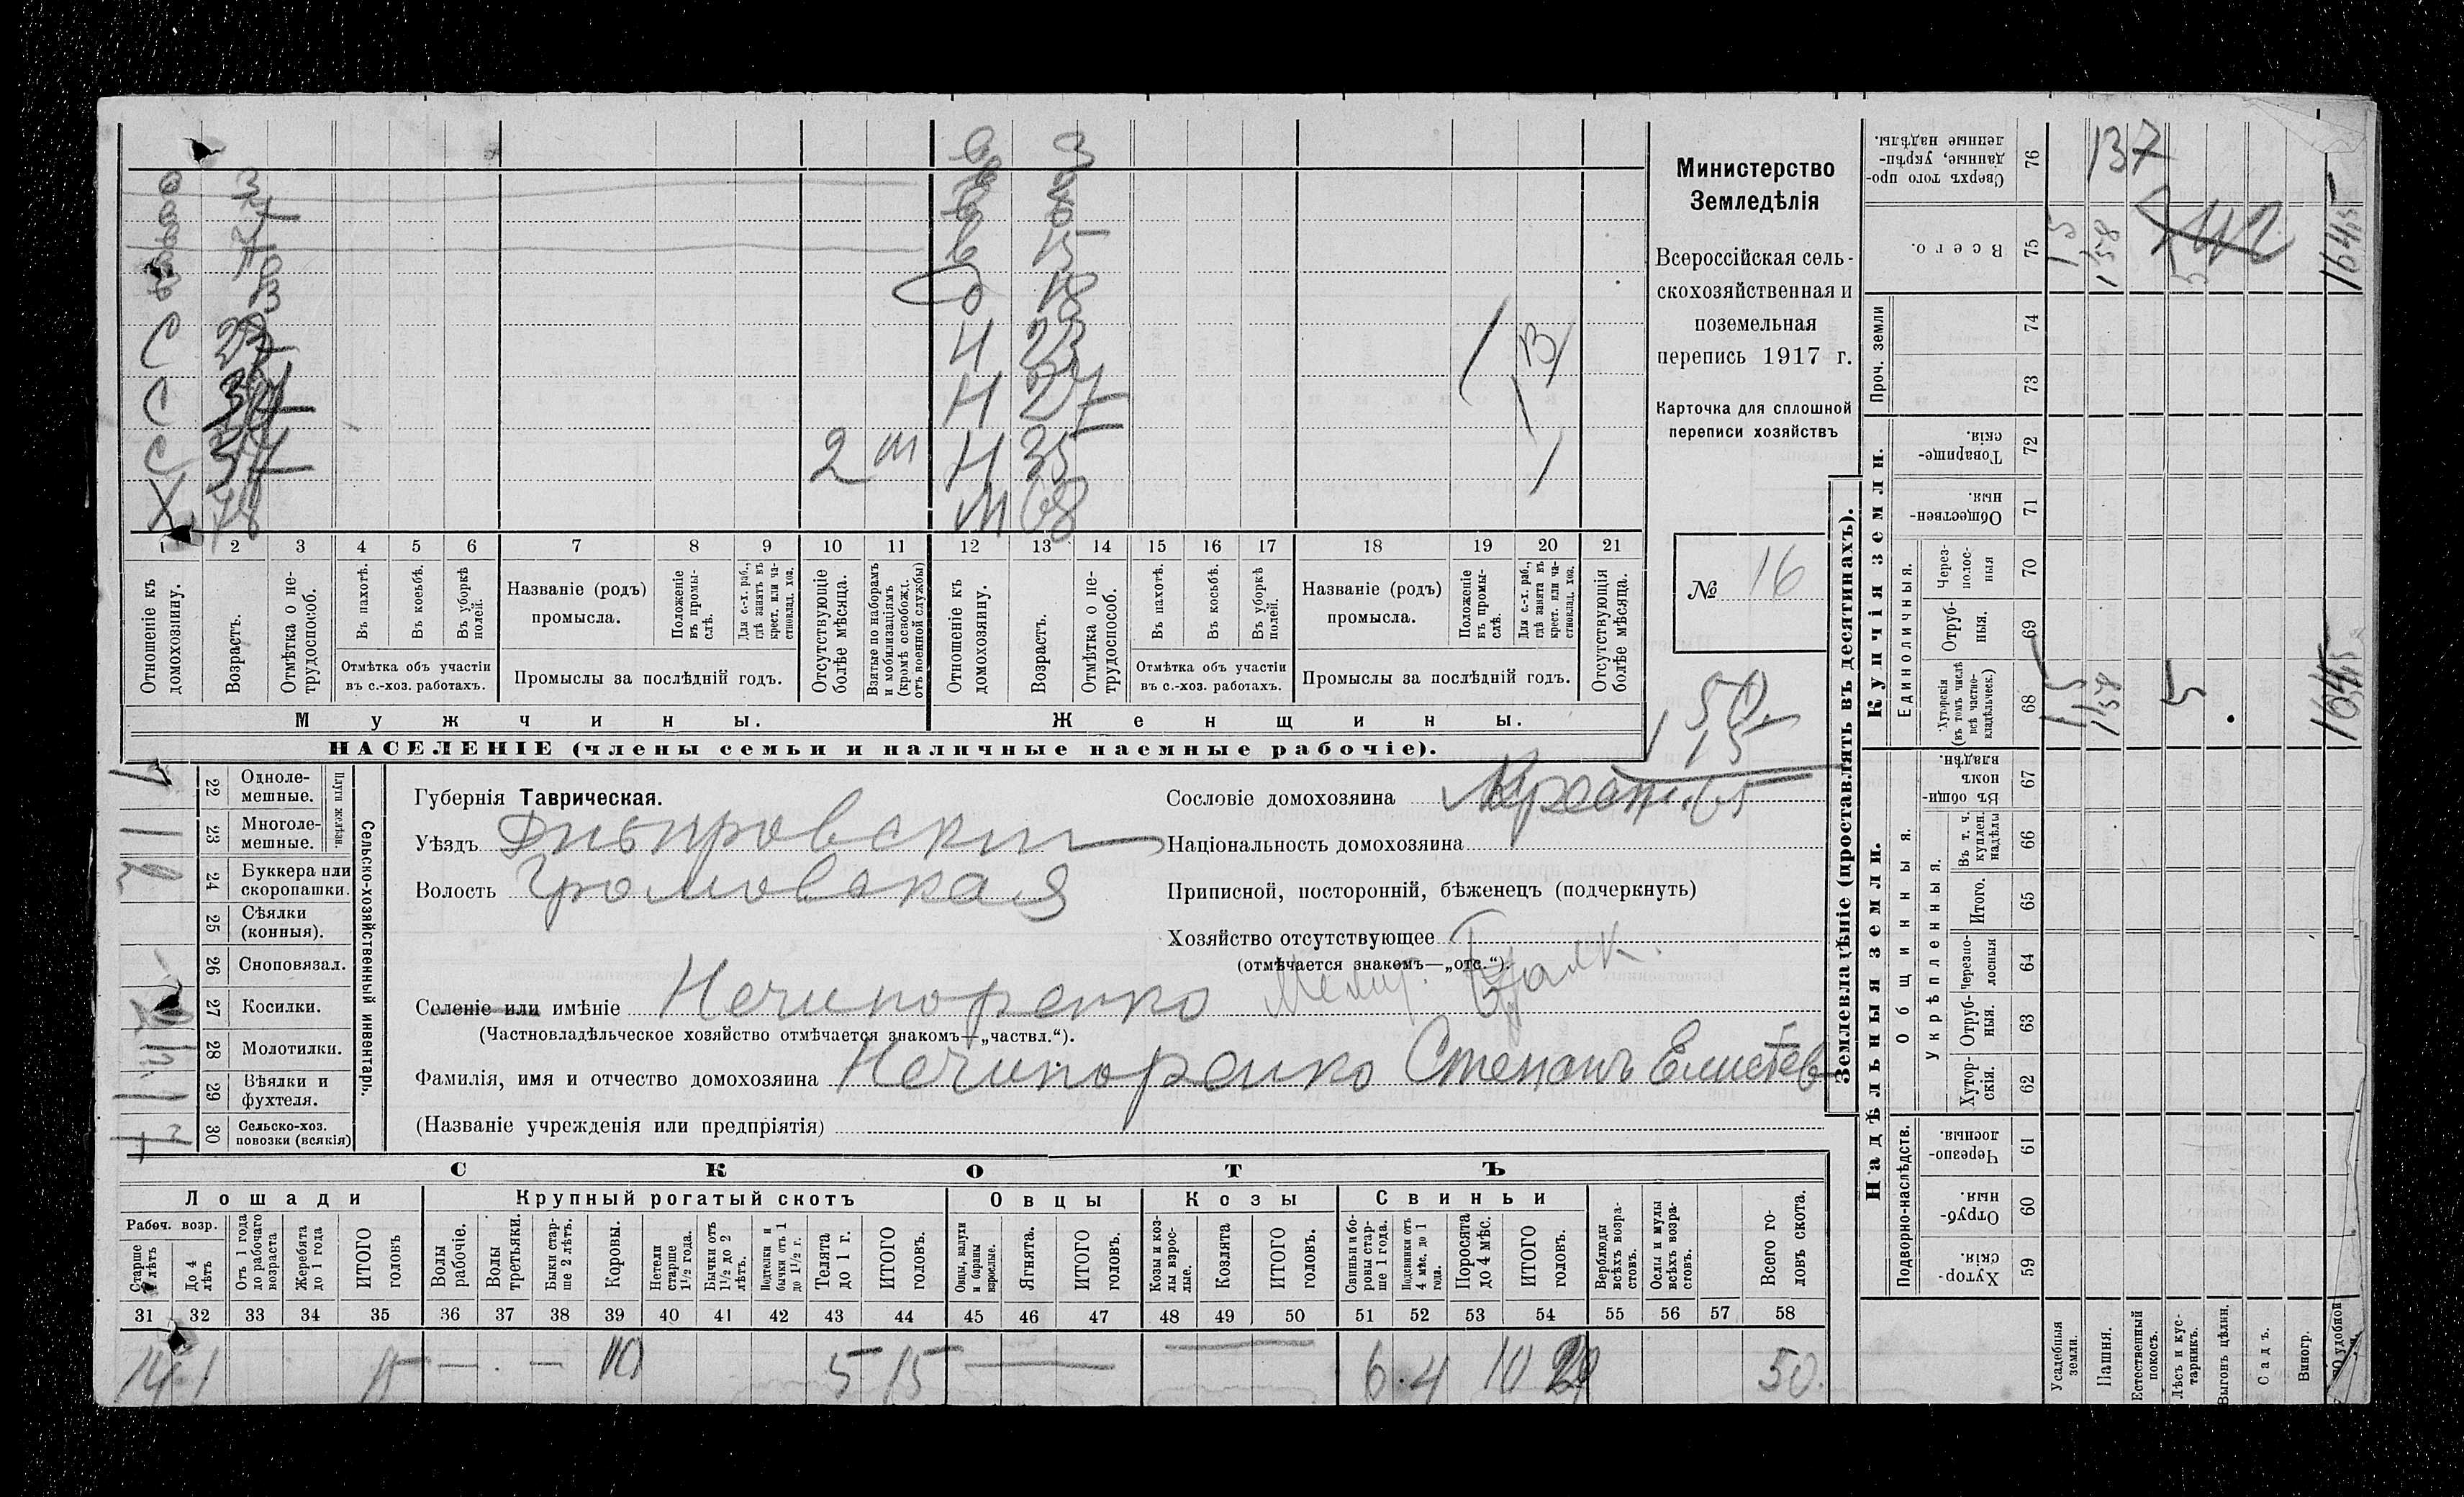 Министерство
Земледѣлія
Всероссійская сель-
скохозяйственная и
поземельная
перепись 1917 г.
Карточка для сплошной
переписи хозяйствъ
№ 16
в 3
в 15
18
С 27 Н 23 / В /
С Н 27
С 37 2 м Н 35 /
Х 78 М 68
1 2 3 4 5 6 7 8 9 10 11 12 13 14 15 16 17 18 19 20 21
Отношеніе къ домохозяину.
Возрастъ.
Отмѣтка о не-трудоспособ.
Въ пахотѣ.
Въ косьбѣ.
Въ уборкѣ полей.
Отмѣтка объ участіи въ с.-хоз. работахъ.
Названіе (родъ) промысла.
Положеніе въ промы-слѣ.
Для с.-х. раб., гдѣ занятъ въ крест. или ча-стновлад. хоз.
Промыслы за послѣдній годъ.
Отсутствующіе болѣе мѣсяца.
Взятые по наборамъ и мобилизаціямъ (кромѣ освобожд. отъ военной службы)
Отношеніе къ домохозяину.
Возрастъ.
Отмѣтка о не-трудоспособ.
Въ пахотѣ.
Въ косьбѣ.
Въ уборкѣ полей.
Отмѣтка объ участіи въ с.-хоз. работахъ.
Названіе (родъ) промысла.
Положеніе въ промы-слѣ.
Для с.-х. раб., гдѣ занята въ крест. или ча-стновлад. хоз.
Промыслы за послѣдній годъ.
Отсутствующія болѣе мѣсяца.
Мужчины. Женщины.
НАСЕЛЕНІЕ (члены семьи и наличные наемные рабочіе).
50
15
65
Сельско-хозяйственный инвентарь.
Плуги желѣзн.
22 Одноле-мешные.
23 Многоле-мешные. 1
24 Буккера или скоропашки. 2
25 Сѣялки (конныя).
26 Сноповязал.
27 Косилки.
28 Молотилки.
29 Вѣялки и фухтеля. 1
30 Сельско-хоз. повозки (всякія)
Губернія Таврическая.
Уѣздъ Днѣпровскій
Волость Громовская
Селеніе или имѣніе Нечипоренко
(Частновладѣльческое хозяйство отмѣчается знакомъ—„частвл.“).
Фамилія, имя и отчество домохозяина Нечипоренко Степанъ Елисеев
(Названіе учрежденія или предпріятія)
Сословіе домохозяина Крест.
Національность домохозяина
Приписной, посторонній, бѣженецъ (подчеркнуть)
Хозяйство отсутствующее
(отмѣчается знакомъ—„отс.“).
СКОТЪ
Лошади Крупный рогатый скотъ Овцы Козы Свиньи
Рабоч. возр.
Старше 4 лѣтъ
До 4 лѣтъ
Отъ 1 года до рабочаго возраста
Жеребята до 1 года
ИТОГО головъ
Волы рабочіе.
Волы третьяки.
Быки стар-ше 2 лѣтъ.
Коровы.
Нетели старше 1½ года.
Бычки отъ 1½ до 2 лѣтъ.
Подтелки и бычки отъ 1 до 1½ г.
Телята до 1 г.
ИТОГО головъ.
Овцы, валухи и бараны взрослые.
Ягнята.
ИТОГО головъ.
Козы и коз-лы взрос-лые.
Козлята
ИТОГО головъ.
Свиньи и бо-ровы стар-ше 1 года.
Подсвинки отъ 4 мѣс. до 1 года.
Поросята до 4 мѣс.
ИТОГО головъ.
Верблюды всѣхъ возра-стовъ.
Ослы и мулы всѣхъ возра-стовъ.
Всего го-ловъ скота.
31 32 33 34 35 36 37 38 39 40 41 42 43 44 45 46 47 48 49 50 51 52 53 54 55 56 57 58
14 1 15 — — 10 5 15 — — 6 4 10 20 50
Землевладѣніе (проставлять въ десятинахъ).
Купчія земли.
Надѣльныя земли.
Сверхъ того про-данные, укрѣп-ленные надѣлы. 76 137
Всего. 75 1,5 158 5 164,5
Проч. земли 74 73
Товарище-скія. 72
Обществен-ныя. 71
Единоличныя.
Через-полос-ныя 70
Отруб-ныя. 69
Хуторскія (въ томъ числѣ всѣ частно-владѣльческ.) 68 1,5 158 5 164,5
Общинныя.
Въ общи-номъ владѣн. 67
Укрѣпленныя.
Въ т. ч. куплен. надѣлы 66
Итого. 65
Черезпо-лосныя 64
Отруб-ныя. 63
Хутор-скія. 62
Подворно-наслѣдств.
Черезпо-лосныя. 61
Отруб-ныя. 60
Хутор-скія. 59
Усадебныя земли.
Пашня.
Естественный покосъ.
Лѣсъ и кус-тарникъ.
Выгонъ цѣлин.
Садъ.
Виногр.
удобной